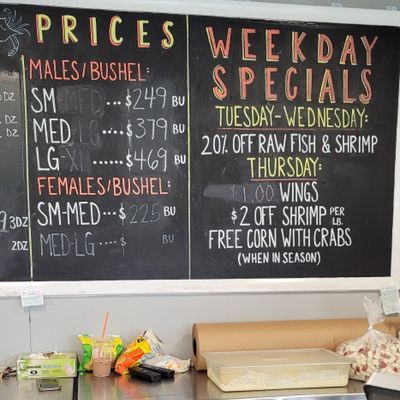 PRICES
MALES/BUSHEL:
SM-MED...$249 BU
MED-LG...$379 BU
LG-XL......$469 BU
FEMALES/BUSHEL:
SM-MED...$225 BU
MED-LG...$ BU
DZ
DZ
DZ
3DZ
2DZ
WEEKDAY
SPECIALS
TUESDAY-WEDNESDAY:
20% OFF RAW FISH & SHRIMP
THURSDAY:
$1.00 WINGS
$2 OFF SHRIMP PER LB.
FREE CORN WITH CRABS
(WHEN IN SEASON)